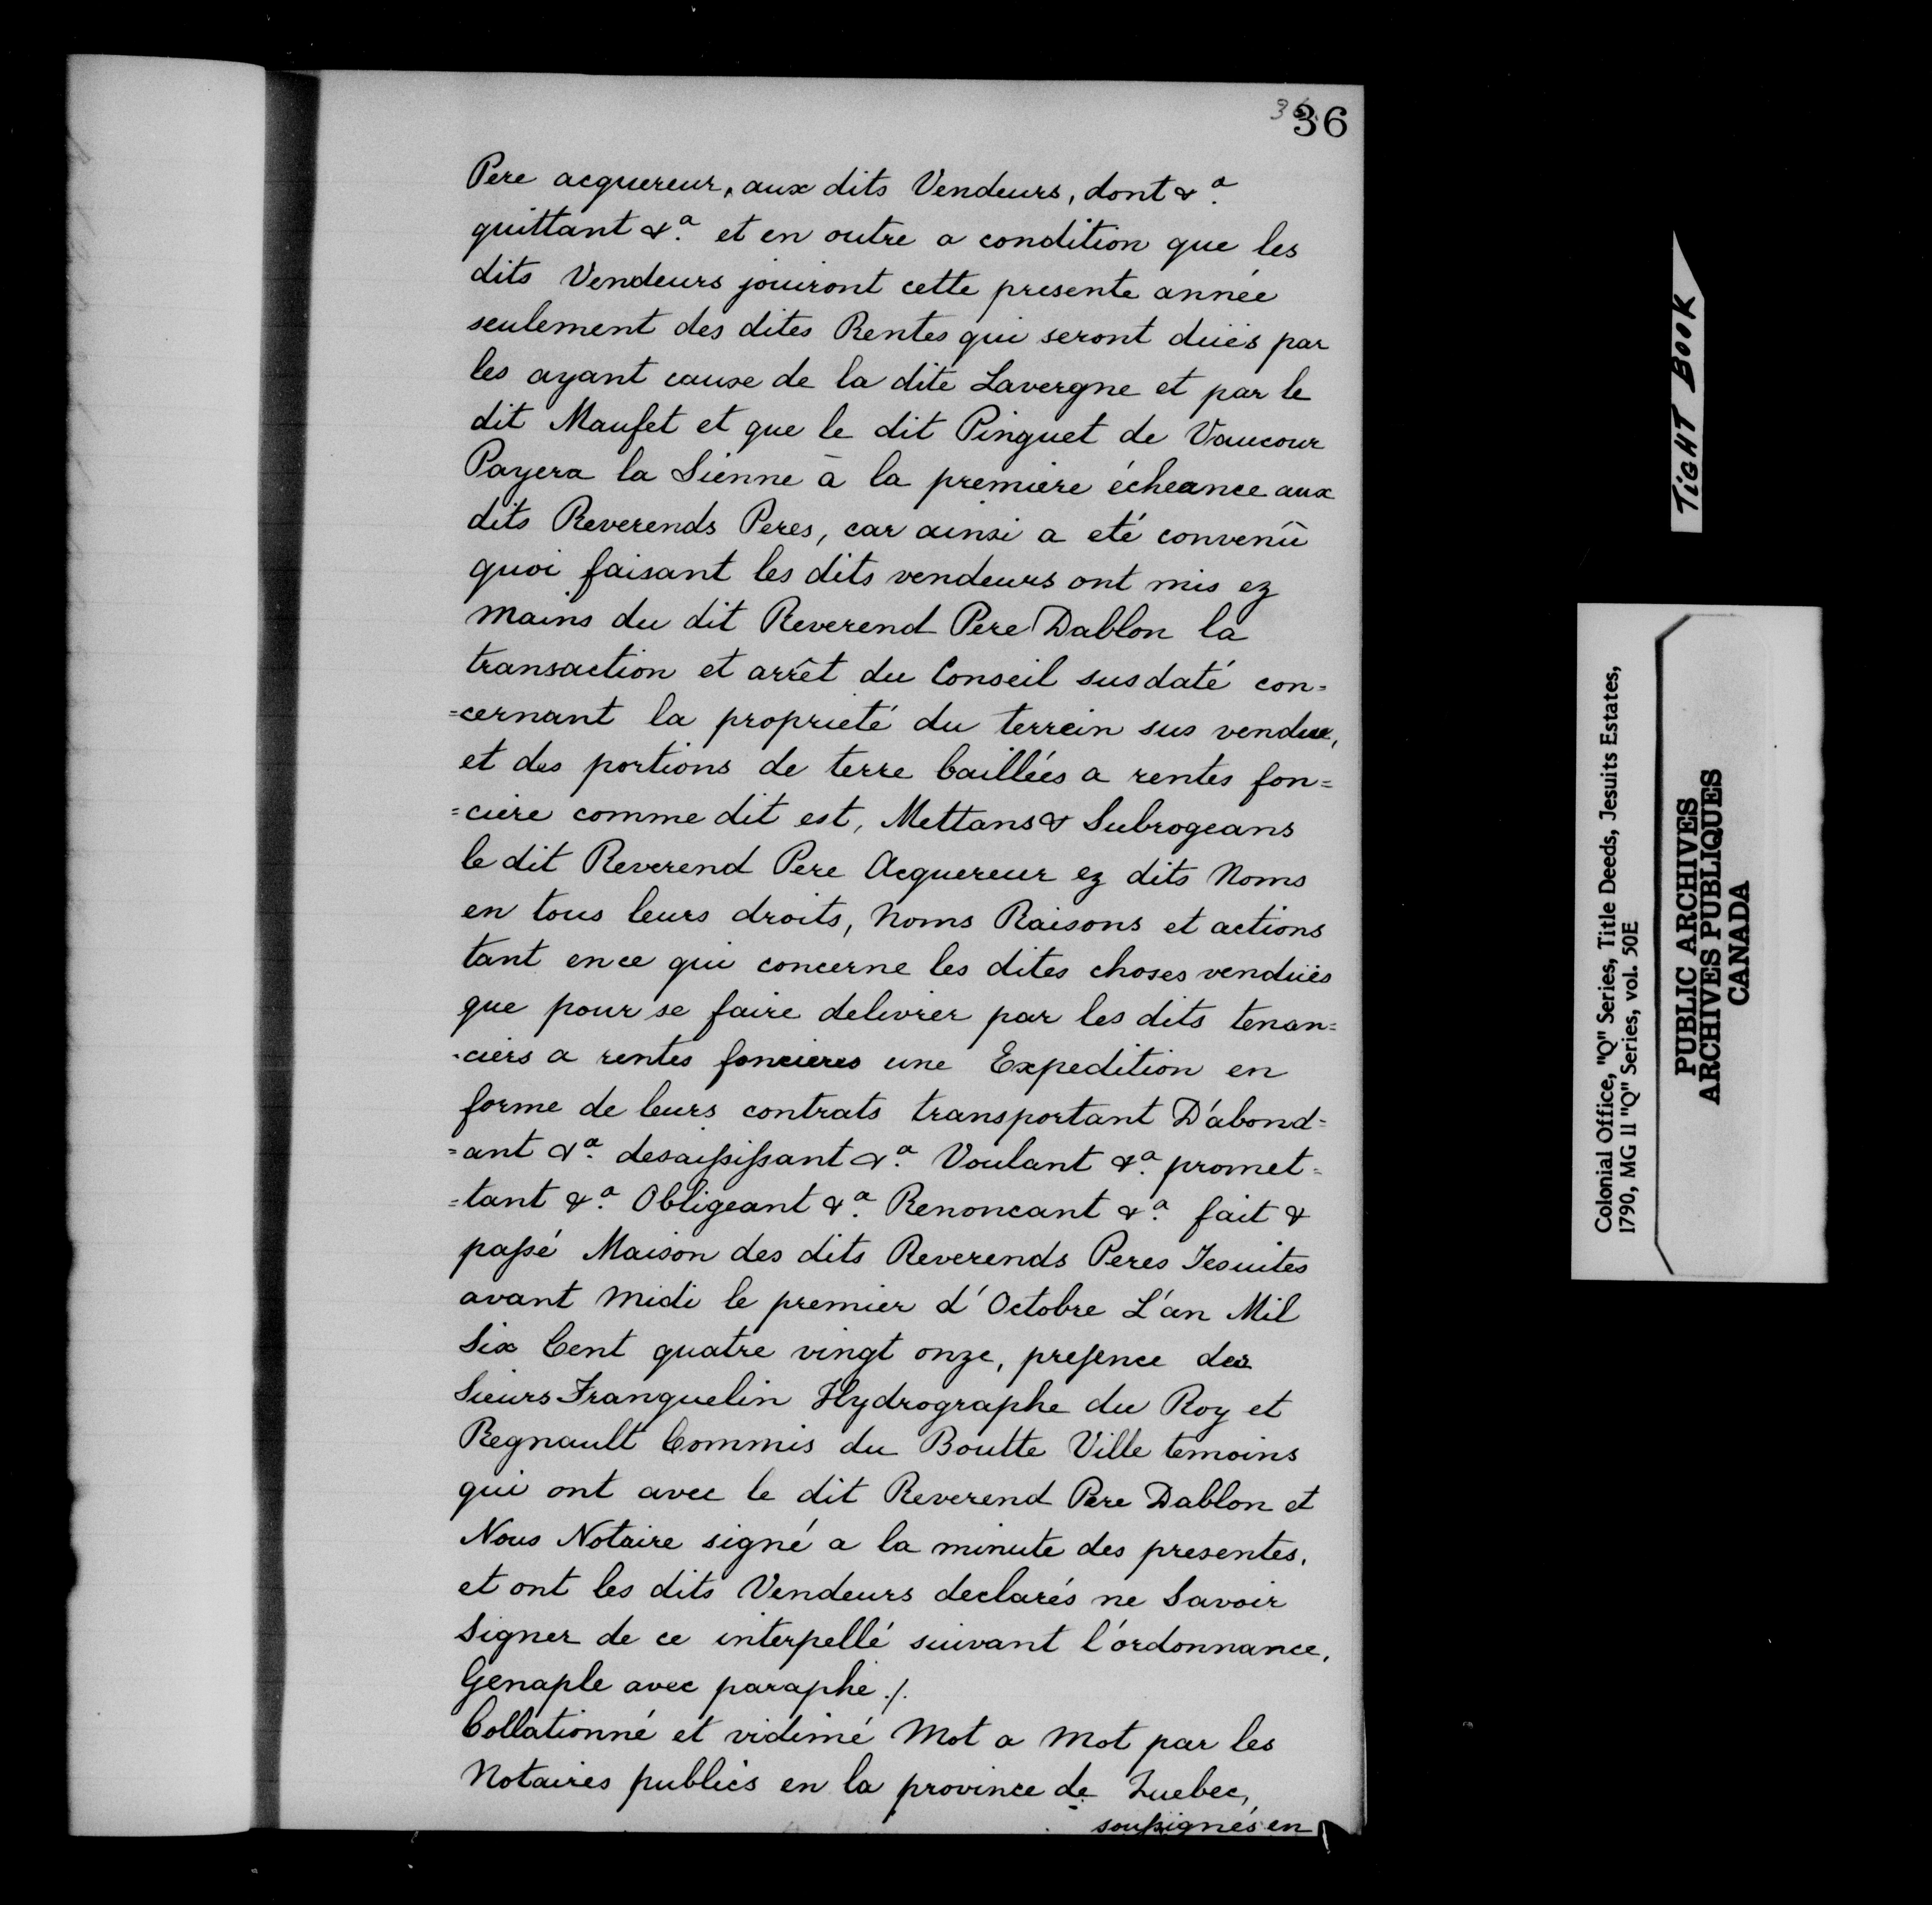 36
36
Pere acquereur, aux dits Vendeurs, dont &a.
quittant &a. et en outre a condition que les
dits Vendeurs jouiront cette presente année
seulement des dites Rentes qui seront düés par
les ayant cause de la dite Lavergne et par le
dit Maufet et que le dit Pinguet de Vaucour
Payera la Sienne à la premiere écheance aux
dits Reverends Peres, car ainsi a eté convenû
quoi faisant les dits vendeurs ont mis ez
mains du dit Reverend Pere Dablon la
transaction et arrêt du Conseil susdaté con=
=cernant la proprieté du terrein sus vendue,
et des portions de terre baillées a rentes fon=
=ciere comme dit est, Mettans & Subrogeans
le dit Reverend Pere Acquereur ez dits Noms
en tous leurs droits, Noms Raisons et actions
tant en ce qui concerne les dites choses vendües
que pour se faire delivrer par les dits tenan=
=ciers a rentes foncieres une Expedition en
forme de leurs contrats transportant D'abond=
=ant &a. desaissisant &a. Voulant &a. promet=
=tant &a. Obligeant &a. Renoncant &a. fait &
passé Maison des dits Reverends Peres Jesuites
avant midi le premier d'Octobre L'an Mil
Six Cent quatre vingt onze, presence des
Sieurs Franquelin Hydrographe du Roy et
Regnault Commis du Boutte Ville temoins
qui ont avec le dit Reverend Pere Dablon et
Nous Notaire signé a la minute des presentes.
et ont les dits Vendeurs declarés ne Savoir
Signer de ce interpellé suivant l'ordonnance,
Genaple avec paraphe ./.
Collationné et vidimé Mot a Mot par les
Notaires publics en la province de Quebec,
soussignés en
TIGHT BOOK
Colonial Office, "Q" Series, Title Deeds, Jesuits Estates,
1790, MG 11 "Q" Series, vol. 50E
PUBLIC ARCHIVES
ARCHIVES PUBLIQUES
CANADA